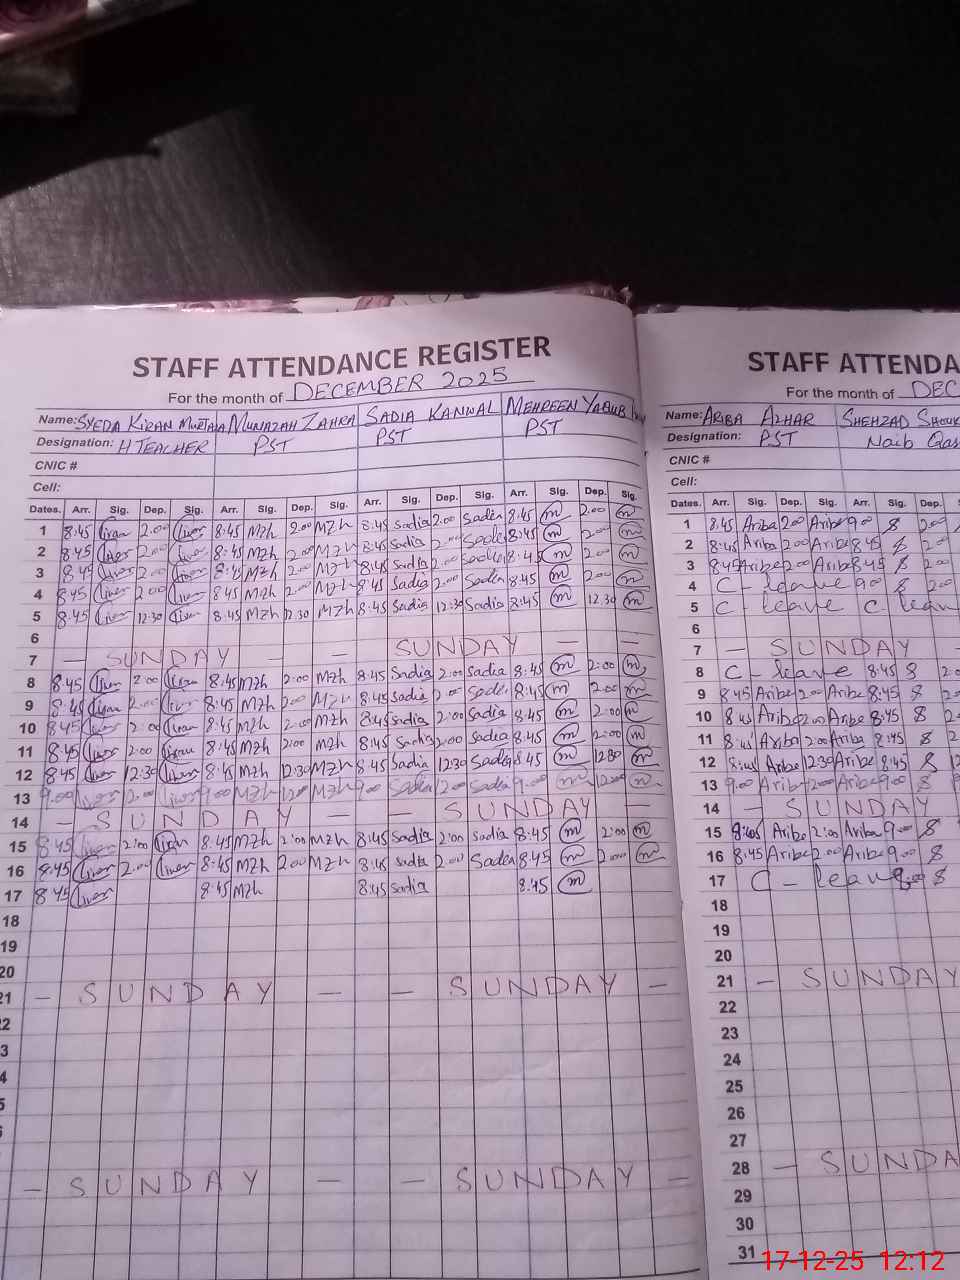 STAFF ATTENDANCE REGISTER
For the month of DECEMBER 2025
Name: SYEDA KIRAN MUNAZAH ZAHRA SADIA KANWAL MEHREEN
Designation: H TEACHER PST PST PST
CNIC #
Cell:
Dates. Arr. Sig. Dep. Sig. Arr. Sig. Dep. Sig. Arr. Sig. Dep. Sig. Arr. Sig. Dep. Sig.
1 8:45 2:00 8:45 Mzh 2:00 Mzh 8:45 Sadia 2:00 Sadia 8:45 m 2:00 m
2 8:45 2:00 8:45 Mzh 2:00 Mzh 8:45 Sadia 2:00 Sadia 8:45 m 2:00 m
3 8:45 2:00 8:45 Mzh 2:00 Mzh 8:45 Sadia 2:00 Sadia 8:45 m 2:00 m
4 8:45 2:00 8:45 Mzh 2:00 Mzh 8:45 Sadia 2:00 Sadia 8:45 m 2:00 m
5 8:45 12:30 8:45 Mzh 12:30 Mzh 8:45 Sadia 12:30 Sadia 8:45 m 12:30 m
6
7 — SUNDAY — — SUNDAY — —
8 8:45 2:00 8:45 Mzh 2:00 Mzh 8:45 Sadia 2:00 Sadia 8:45 m 2:00 m
9 8:45 2:00 8:45 Mzh 2:00 Mzh 8:45 Sadia 2:00 Sadia 8:45 m 2:00 m
10 8:45 2:00 8:45 Mzh 2:00 Mzh 8:45 Sadia 2:00 Sadia 8:45 m 2:00 m
11 8:45 2:00 8:45 Mzh 2:00 Mzh 8:45 Sadia 2:00 Sadia 8:45 m 2:00 m
12 8:45 12:30 8:45 Mzh 12:30 Mzh 8:45 Sadia 12:30 Sadia 8:45 m 12:30 m
13 9:00 12:00 9:00 Mzh 12:00 Mzh 9:00 Sadia 12:00 Sadia 9:00 m 12:00 m
14 — SUNDAY — — SUNDAY —
15 8:45 2:00 8:45 Mzh 2:00 Mzh 8:45 Sadia 2:00 Sadia 8:45 m 2:00 m
16 8:45 2:00 8:45 Mzh 2:00 Mzh 8:45 Sadia 2:00 Sadia 8:45 m 2:00 m
17 8:45 8:45 Mzh 8:45 Sadia 8:45 m
18
19
20
21 — SUNDAY — — SUNDAY —
— SUNDAY — — SUNDAY —
STAFF ATTENDA
For the month of DEC
Name: ARIBA AZHAR SHEHZAD
Designation: PST Naib
CNIC #
Cell:
Dates. Arr. Sig. Dep. Sig. Arr. Sig. Dep.
1 8:45 Ariba 2:00 Ariba 9:00 2:00
2 8:45 Ariba 2:00 Ariba 8:45 2:00
3 8:45 Ariba 2:00 Ariba 8:45 2:00
4 C - leave 9:00 2:00
5 C - leave C
6
7 — SUNDAY
8 C - leave 8:45
9 8:45 Ariba 2:00 Ariba 8:45
10 8:45 Ariba 2:00 Ariba 8:45
11 8:45 Ariba 2:00 Ariba 8:45
12 8:45 Ariba 12:30 Ariba 8:45
13 9:00 Ariba 12:00 Ariba 9:00
14 — SUNDAY
15 8:45 Ariba 2:00 Ariba 9:00
16 8:45 Ariba 2:00 Ariba 9:00
17 C - leave
18
19
20
21 — SUNDAY
22
23
24
25
26
27
28 — SUNDA
29
30
31
17-12-25 12:12